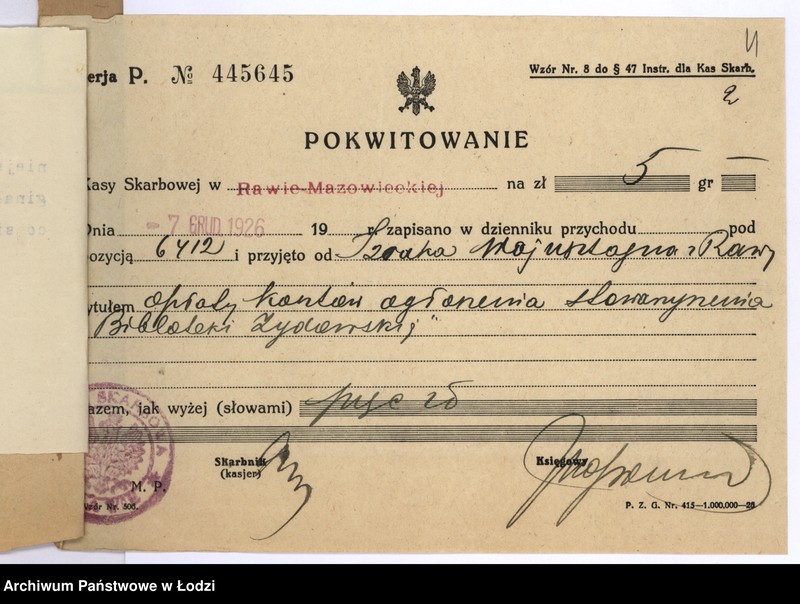 erja P. № 445645
Wzór Nr. 8 do § 47 Instr. dla Kas Skarb.
2
POKWITOWANIE
Kasy Skarbowej w Rawie Mazowieckiej na zł 5 gr —
Dnia - 7 GRUD. 1926 19 r. zapisano w dzienniku przychodu pod
pozycją 6412 i przyjęto od Icraka z Rawy
ytułem opłaty kosztów ogłoszenia stowarzyszenia
"Bibloteki Żydowskiej"
azem, jak wyżej (słowami) pięć zł
SKARBOWA
Skarbnik
(kasjer)
Księgowy
M. P.
Wzór Nr. 506.
P. Z. G. Nr. 415—1.000.000—26
Archiwum Państwowe w Łodzi